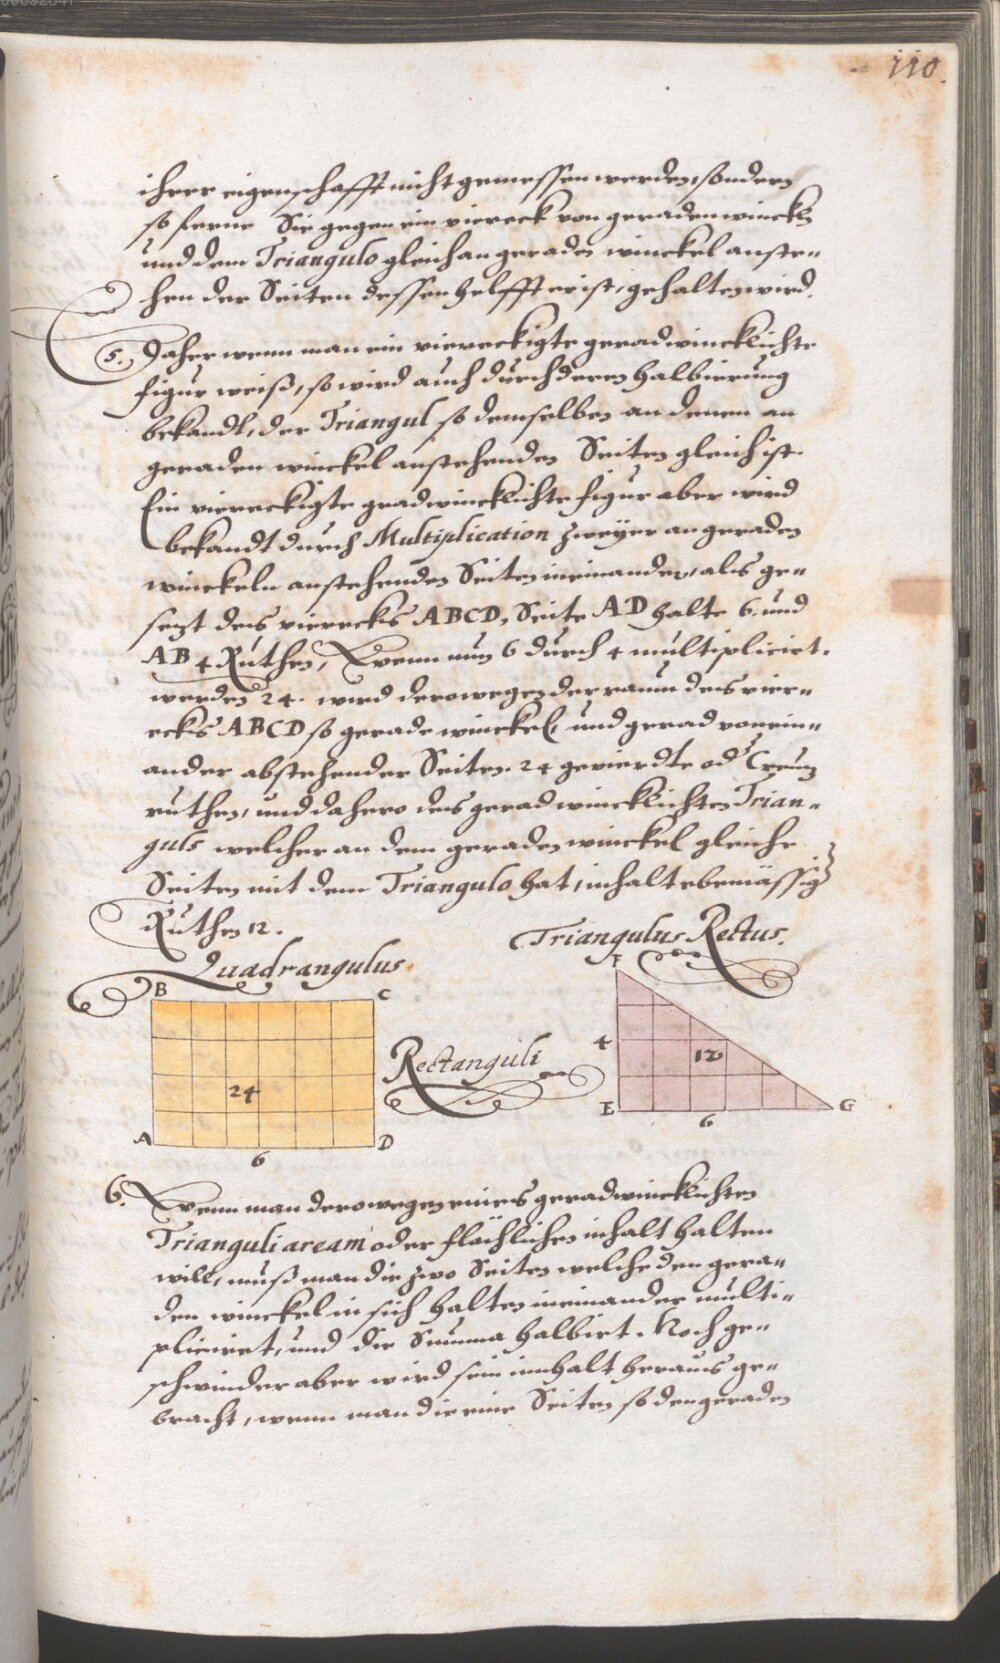 110.
ihrer eigenschafft nicht gemessen werden, sondern
so ferne Sie gegen ein viereck von geraden winckln
und dem Triangulo gleich an geraden winckel anste=
hen der Seiten dessen helfft er ist, gehalten wird.
5. Daher wenn man ein viereckigte geradwincklichte
figur weiß, so wird auch durch deren halbierung
bekandt, der Triangul so demselben an denen an
geraden winckel anstehenden Seiten gleich ist.
Ein viereckigte gradwincklichte figur aber wird
bekandt durch Multiplication zweyer an geraden
winckeln anstehenden Seiten in einander, als ge=
sezt des vierecks ABCD, Seite AD halte 6. und
AB 4 Ruthen, Wenn nun 6 durch 4 multiplicirt.
werden 24. wird derowegen der raum des vier=
ecks ABCD so gerade winckel, und gerad von ein=
ander abstehender Seiten. 24 gevierdte od Creuz
ruthen, und dahero des geradwincklichten Trian=
guls welcher an dem geraden winckel gleiche
Seiten mit dem Triangulo hat, inhalt ebenmässig
Ruthen 12.
Triangulus Rectus.
Quadrangulus
B C
F
Rectanguli
4
12
24
E G
6
A D
6
6. Wenn man derowegen eines geradwincklichten
Trianguli aream oder flächlichen inhalt halten
will, muß man die zwo Seiten welche den gera=
den winckel in sich halten in einander multi=
pliciret, und die Summa halbirt. Noch ge=
schwinder aber wird sein innhalt heraus ge=
bracht, wenn man die eine Seiten so den geraden